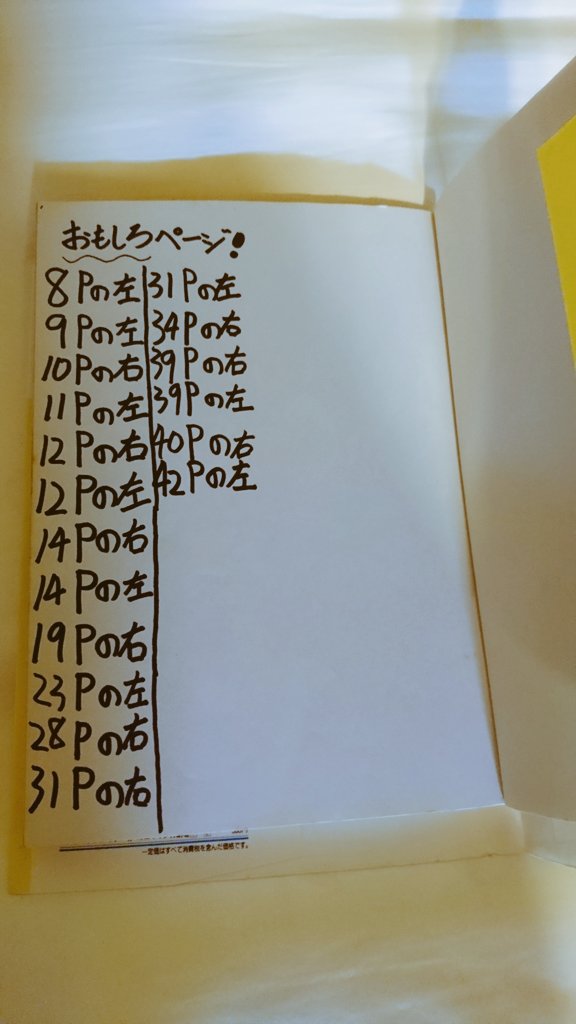 おもしろページ!
8Pの左
9Pの左
10Pの右
11Pの左
12Pの右
12Pの左
14Pの右
14Pの左
19Pの右
23Pの左
28Pの右
31Pの右
31Pの左
34Pの右
39Pの右
39Pの左
40Pの右
42Pの左
定価はすべて消費税を含んだ価格です。